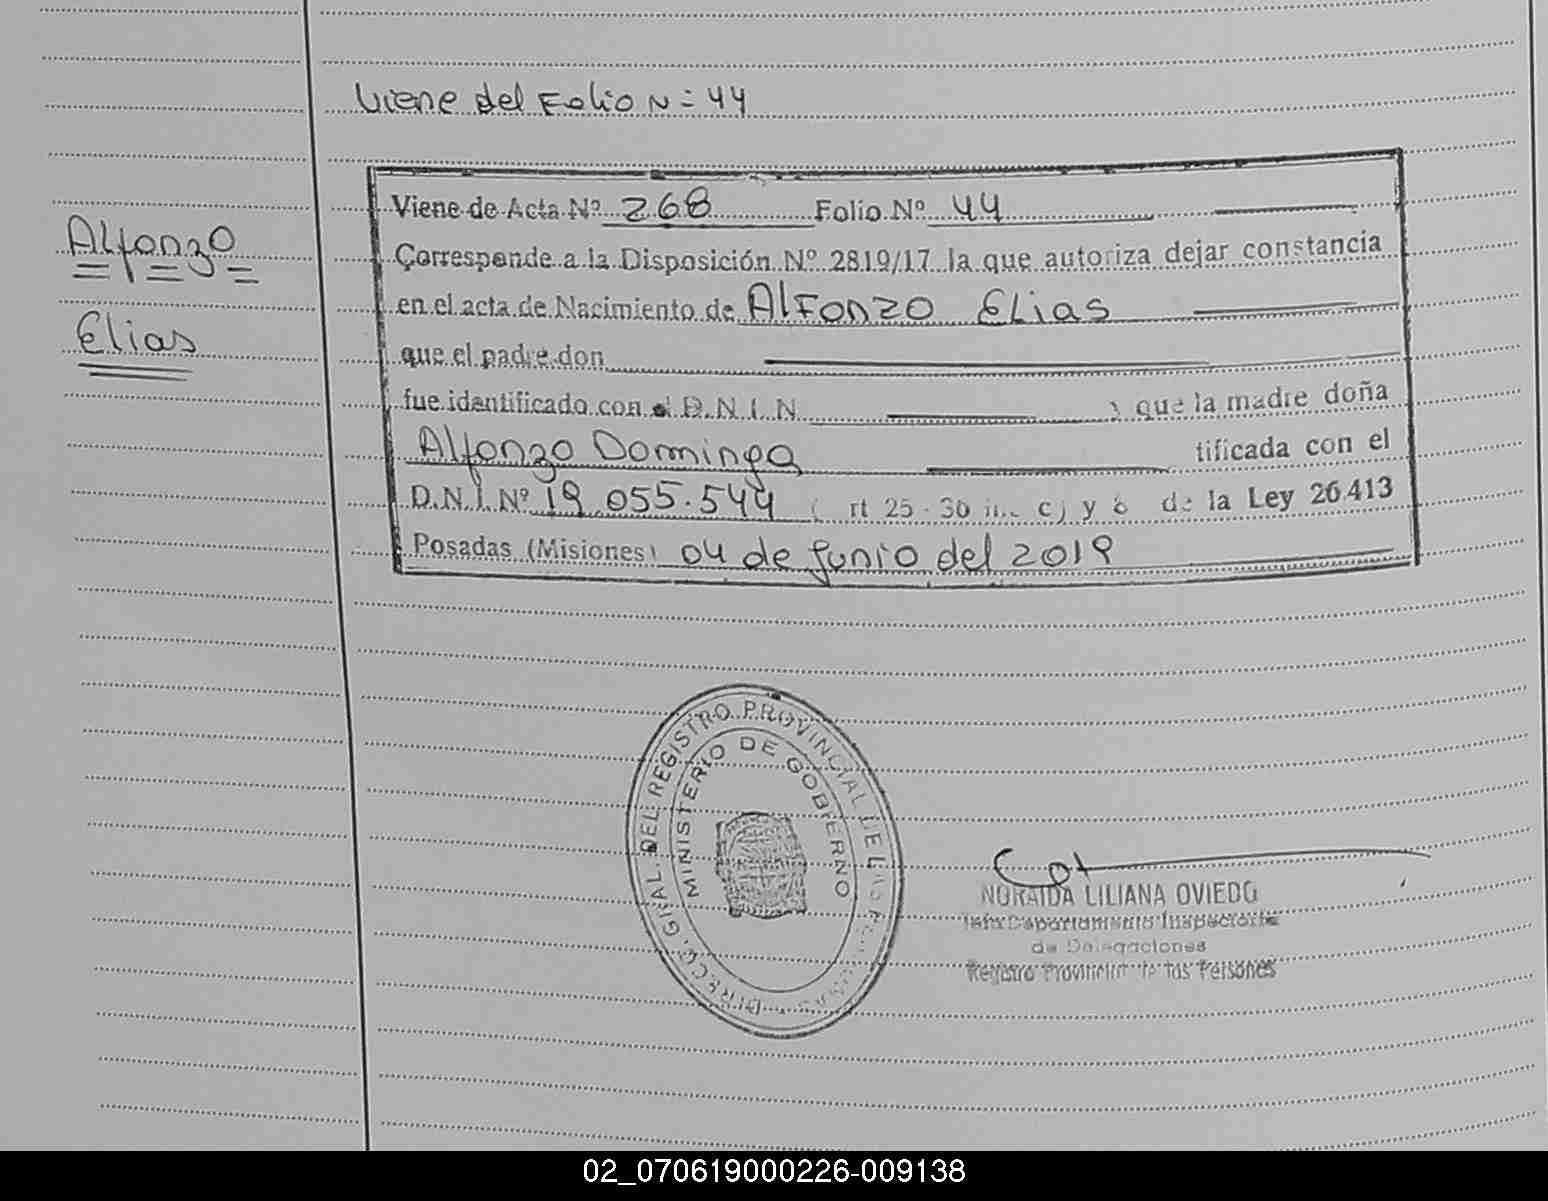 Viene del Folio N= 44
Alfonzo
Elias
Viene de Acta Nº 268 Folio Nº 44
Corresponde a la Disposición Nº 2819/17 la que autoriza dejar constancia
en el acta de Nacimiento de Alfonzo Elias
que el padre don
fue identificado con el D.N.I.N ) que la madre doña
Alfonzo Dominga tificada con el
D.N.I.Nº 19.055.544 ( rt 25 - 36 c) y de la Ley 26.413
Posadas (Misiones) 04 de junio del 2019
DIRECC. GRAL. DEL REGISTRO PROVINCIAL DE LAS PERSONAS
MINISTERIO DE GOBIERNO
NORAIDA LILIANA OVIEDO
Departamento Inspectoría
de Delegaciones
Registro Provincial de las Personas
02_070619000226-009138